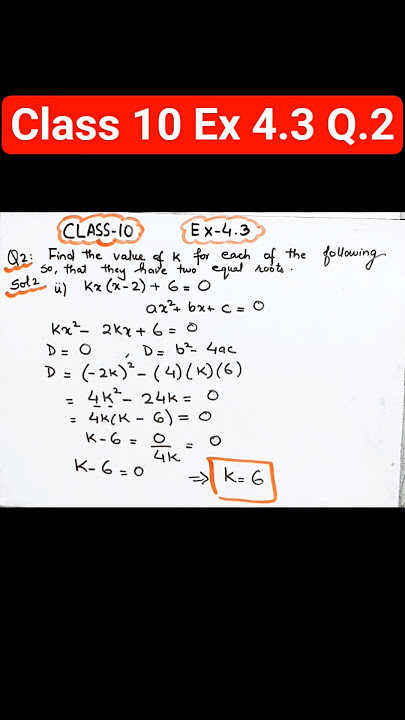 Class 10 Ex 4.3 Q.2
CLASS-10 Ex-4.3
Q2: Find the value of k for each of the following
so, that they have two equal roots.
Sol2 ii) Kx(x-2) + 6 = 0
ax²+ bx + c = 0
Kx² - 2Kx + 6 = 0
D = 0 , D = b² - 4ac
D = (-2K)² - (4)(K)(6)
= 4K² - 24K = 0
= 4K(K - 6) = 0
K-6 = 0/4K = 0
K-6 = 0 ⇒ K = 6